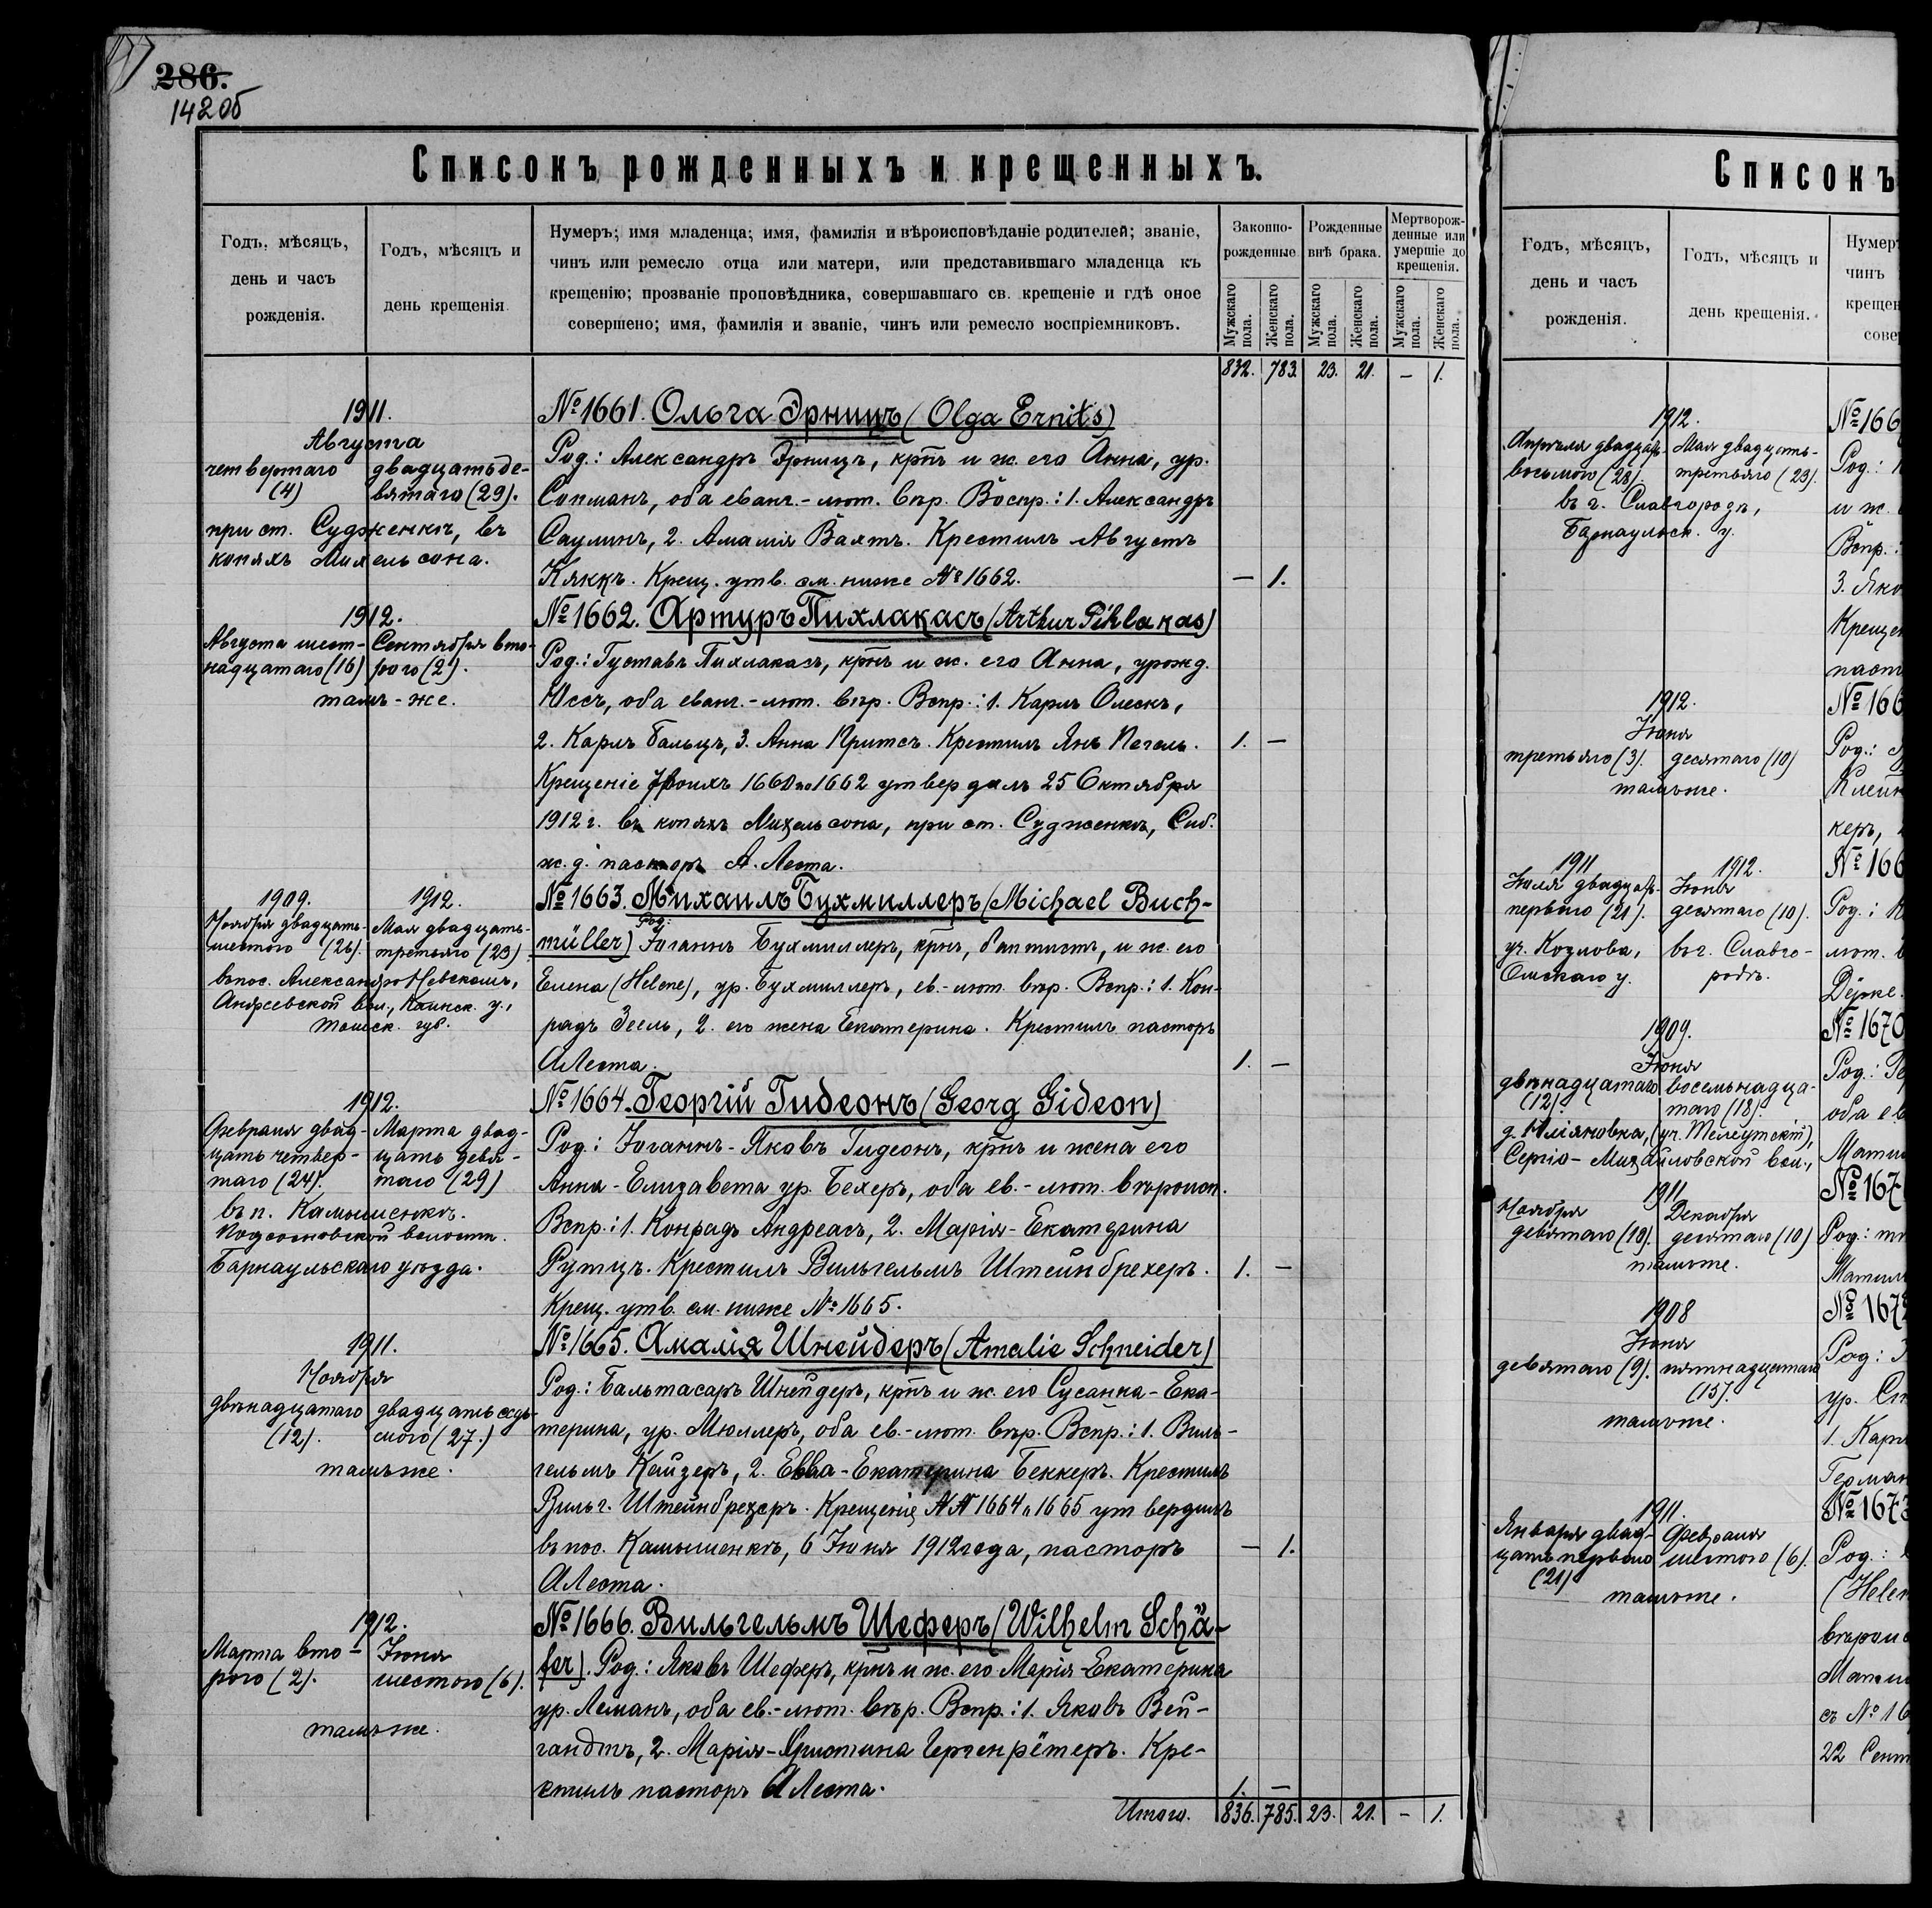 286.
142об
Списокъ рожденныхъ и крещенныхъ.
Годъ, мѣсяцъ,
день и часъ
рожденія.
Годъ, мѣсяцъ и
день крещенія
Нумеръ; имя младенца; имя, фамилія и вѣроисповѣданіе родителей; званіе,
чинъ или ремесло отца или матери, или представившаго младенца къ
крещенію; прозваніе проповѣдника, совершавшаго св. крещеніе и гдѣ оное
совершено; имя, фамилія и званіе, чинъ или ремесло воспріемниковъ.
Законно-
рожденные
Рожденные
внѣ брака.
Мертворож-
денные или
умершіе до
крещенія.
Мужскаго пола.
Женскаго пола.
Мужскаго пола.
Женскаго пола.
Мужскаго пола.
Женскаго пола.
832. 783. 23. 21. – 1.
1911.
Августа
четвертаго
(4)
двадцать де-
вятаго (29).
при ст. Судженкѣ, въ
копяхъ Михельсона.
№ 1661. Ольга Эрницъ (Olga Ernits)
Род.: Александръ Эрницъ, крнъ и ж. его Анна, ур.
Сопманъ, оба еванг.-лют. вѣр. Воспр.: 1. Александръ
Саулинъ, 2. Амалія Вахтъ. Крестилъ Августъ
Кяккъ. Крещ. утв. см. ниже № 1662.
– 1.
1912.
Августа шест-
надцатаго (16)
Сентября вто-
рого (2).
тамъ-же.
№ 1662. Артуръ Пихлакасъ (Arthur Pihlakas)
Род.: Густавъ Пихлакасъ, крнъ и ж. его Анна, урожд.
Юссъ, оба еванг.-лют. вѣр. Вспр.: 1. Карлъ Олескъ,
2. Карлъ Бальцъ, 3. Анна Притсъ. Крестилъ Янъ Пегель.
1. –
Крещеніе троихъ 1660 по 1662 утвердилъ 25 Октября
1912 г. въ копяхъ Михельсона, при ст. Судженкѣ, Сиб.
ж. д. пасторъ А. Леста.
1909.
Ноября двадцать-
шестого (26).
1912.
Мая двадцать-
третьяго (23)
въ пос. Александро-Невскомъ,
Андреевской вол., Каинск. у.,
Томск. губ.
№ 1663. Михаилъ Бухмиллеръ (Michael Buch-
müller) Род: Іоганнъ Бухмиллеръ, крнъ, баптистъ, и ж. его
Елена (Helene), ур. Бухмиллеръ, ев.-лют. вѣр. Вспр.: 1. Кон-
радъ Зеель, 2. его жена Екатерина. Крестилъ пасторъ
А Леста.
1. –
1912.
Февраля двад-
цать четвер-
таго (24).
Марта двад-
цать девя-
таго (29)
въ п. Камышенкѣ.
Подсосновской волости.
Барнаульскаго уѣзда.
№ 1664. Георгій Гидеонъ (Georg Gideon)
Род: Іоганнъ-Яковъ Гидеонъ, крнъ и жена его
Анна-Елизавета ур. Бехеръ, оба ев.-лют. вѣроисп.
Вспр.: 1. Конрадъ Андреасъ, 2. Марія-Екатерина
Рутцъ. Крестилъ Вильгельмъ Штейнбрехеръ.
1. –
Крещ. утв. см. ниже № 1665.
1911.
Ноября
двѣнадцатаго
(12).
двадцать седь-
мого (27.)
тамъ же.
№ 1665. Амалія Шнейдеръ (Amalie Schneider)
Род.: Бальтасаръ Шнейдеръ, крнъ и ж. его Сусанна-Ека-
терина, ур. Мюллеръ, оба ев.-лют. вѣр. Вспр.: 1. Виль-
гельмъ Кейзеръ, 2. Евва-Екатерина Беккеръ. Крестилъ
Вильг. Штейнбрехеръ. Крещеніе №№ 1664 и 1665 утвердилъ
въ пос. Камышенкѣ, 6 Іюня 1912 года, пасторъ
– 1.
А Леста.
1912.
Марта вто-
рого (2).
Іюня
шестого (6).
тамъ же.
№ 1666. Вильгельмъ Шеферъ (Wilhelm Schä-
fer). Род.: Яковъ Шеферъ, крнъ и ж. его Марія-Екатерина
ур. Леманъ, оба ев.-лют. вѣр. Вспр.: 1. Яковъ Вей-
гандтъ, 2. Марія-Христина Гергенрётеръ. Кре-
стилъ пасторъ А Леста.
1. –
Итого. 836. 785. 23. 21. – 1.
Списокъ
Годъ, мѣсяцъ,
день и часъ
рожденія.
Годъ, мѣсяцъ и
день крещенія.
Нумеръ
чинъ
крещен
сове
1912.
Апрѣля двадцать-
восьмого (28).
Мая двадцать-
третьяго (23).
въ г. Славгородѣ,
Барнаульск. у.
№ 166
Род.:
и ж.
Вспр.:
3. Яко
Крещен
паст
1912.
Іюня
третьяго (3).
десятаго (10)
тамъ же.
№ 166
Род.:
Клейн
керъ,
1911
Іюля двадцать-
перваго (21).
уч. Козлова,
Омскаго у.
1912.
Іюня
десятаго (10).
въ г. Славго-
родѣ.
№ 166
Род.:
лют. в
1909.
Іюня
двѣнадцатаго
(12).
восемьнадца-
таго (18).
(уч. Телеутскій),
Сергіо-Михайловской вол.,
№ 1670
Род.:
оба ев
1911
Ноября
Декабря
десятаго (10)
тамъ же.
№ 167
Род:
1908
Іюня
девятаго (9).
пятнадцатаго
(15).
тамъ же.
№ 167
Род:
ур.
1. Карл
Герман
1911.
Января двад-
цать перваго
(21)
Февраля
шестого (6).
тамъ же.
№ 1673
Род.:
(Helen
вѣроис
съ № 16
22 Сент